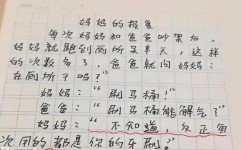 妈妈的报复
每次妈妈和爸爸吵架后,
妈妈就跑到厕所呆半天,这样
的次数多了,爸爸就问妈妈:
在厕所干吗?”
妈妈:“刷马桶!”
爸爸:“刷马桶能解气?”
妈妈:“不知道,反正每
次用的都是你的牙刷!”